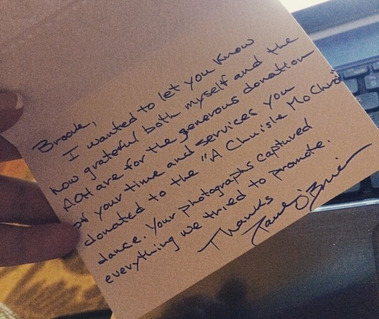 Brook,
I wanted to let you know
how grateful both myself and the
AOH are for the generous donation
of your time and services you
donated to the "A Chuisle Mo Chroí"
dance. Your photographs captured
everything we tried to promote.
Thanks